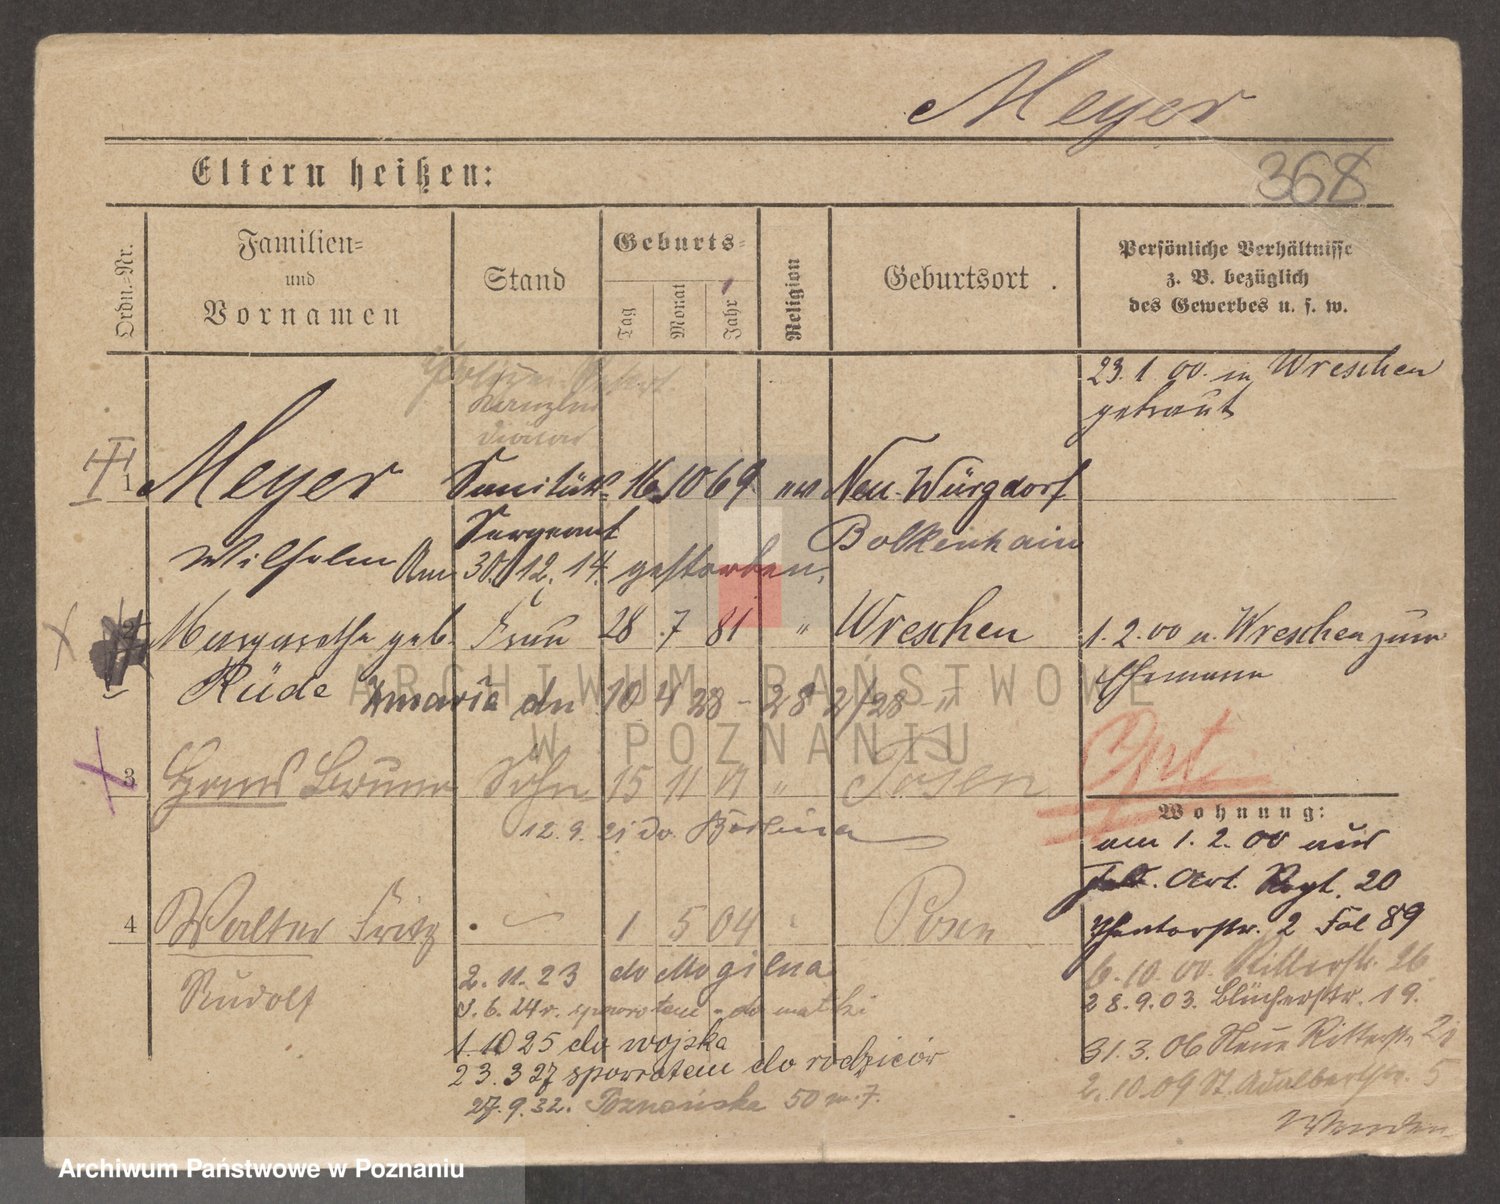 Meyer
368
Eltern heißen:
Ordn.-Nr.
Familien-
und
Vornamen
Stand
Geburts-
Tag
Monat
Jahr
Religion
Geburtsort
Persönliche Verhältnisse
z. B. bezüglich
des Gewerbes u. s. w.
23. 1. 00. in Wreschen
getraut
Kanzlei
Diätar
1 Meyer Sanitäts- 16. 10 69 ev Neu-Würgsdorf
Sergeant Bolkenhain
Wilhelm Am 30. 12. 14. gestorben.
Margarethe geb. Frau 28 7 81 " Wreschen
1. 2. 00 v. Wreschen zum
Rüde Zmarła dn 10 4 28 - 28 2/28
Ehemann
3 Hans Bruno Sohn 15 11 01 " Posen
Opt.
12. 9. 21 do Berlina
Wohnung:
am 1. 2. 00 aus
Feld. Art. Regt. 20
4 Walter Fritz 1 5 04 Posen
2 Fol 89
Rudolf
2. 11. 23 do Mogilna
6. 10. 00. Ritterstr. 26
3. 6. 24 r. spowrotem - do matki
28. 9. 03. Blücherstr. 19.
1. 10 25 do wojska
31. 3. 06 Neue Ritterstr. 2
23. 3 27 spowrotem do rodziców
2. 10. 09 St. Adalbertstr. 5
27. 9. 32. Poznańska 50 m. 7.
Wenden
ARCHIWUM PAŃSTWOWE
W POZNANIU
Archiwum Państwowe w Poznaniu